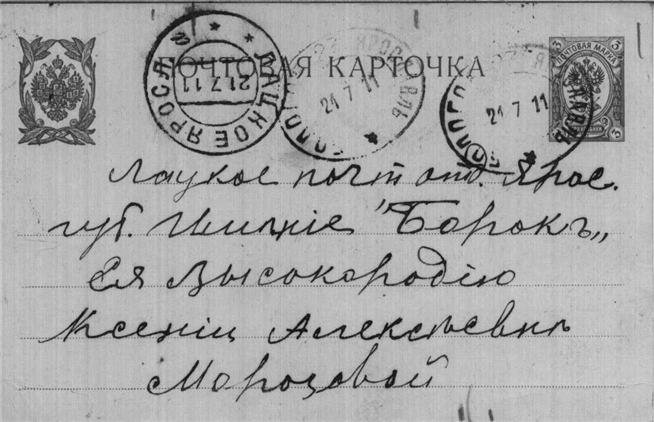 ПОЧТОВАЯ КАРТОЧКА
ПОЧТОВАЯ МАРКА
3 3
ЛАЦКОЕ ЯРОСЛ
21.7.11
21 7 11
21 7 11
Лацкое почт отд. Ярос.
губ. Имѣніе "Борокъ„
Ея Высокородію
Ксеніи Алексѣевнѣ
Морозовой